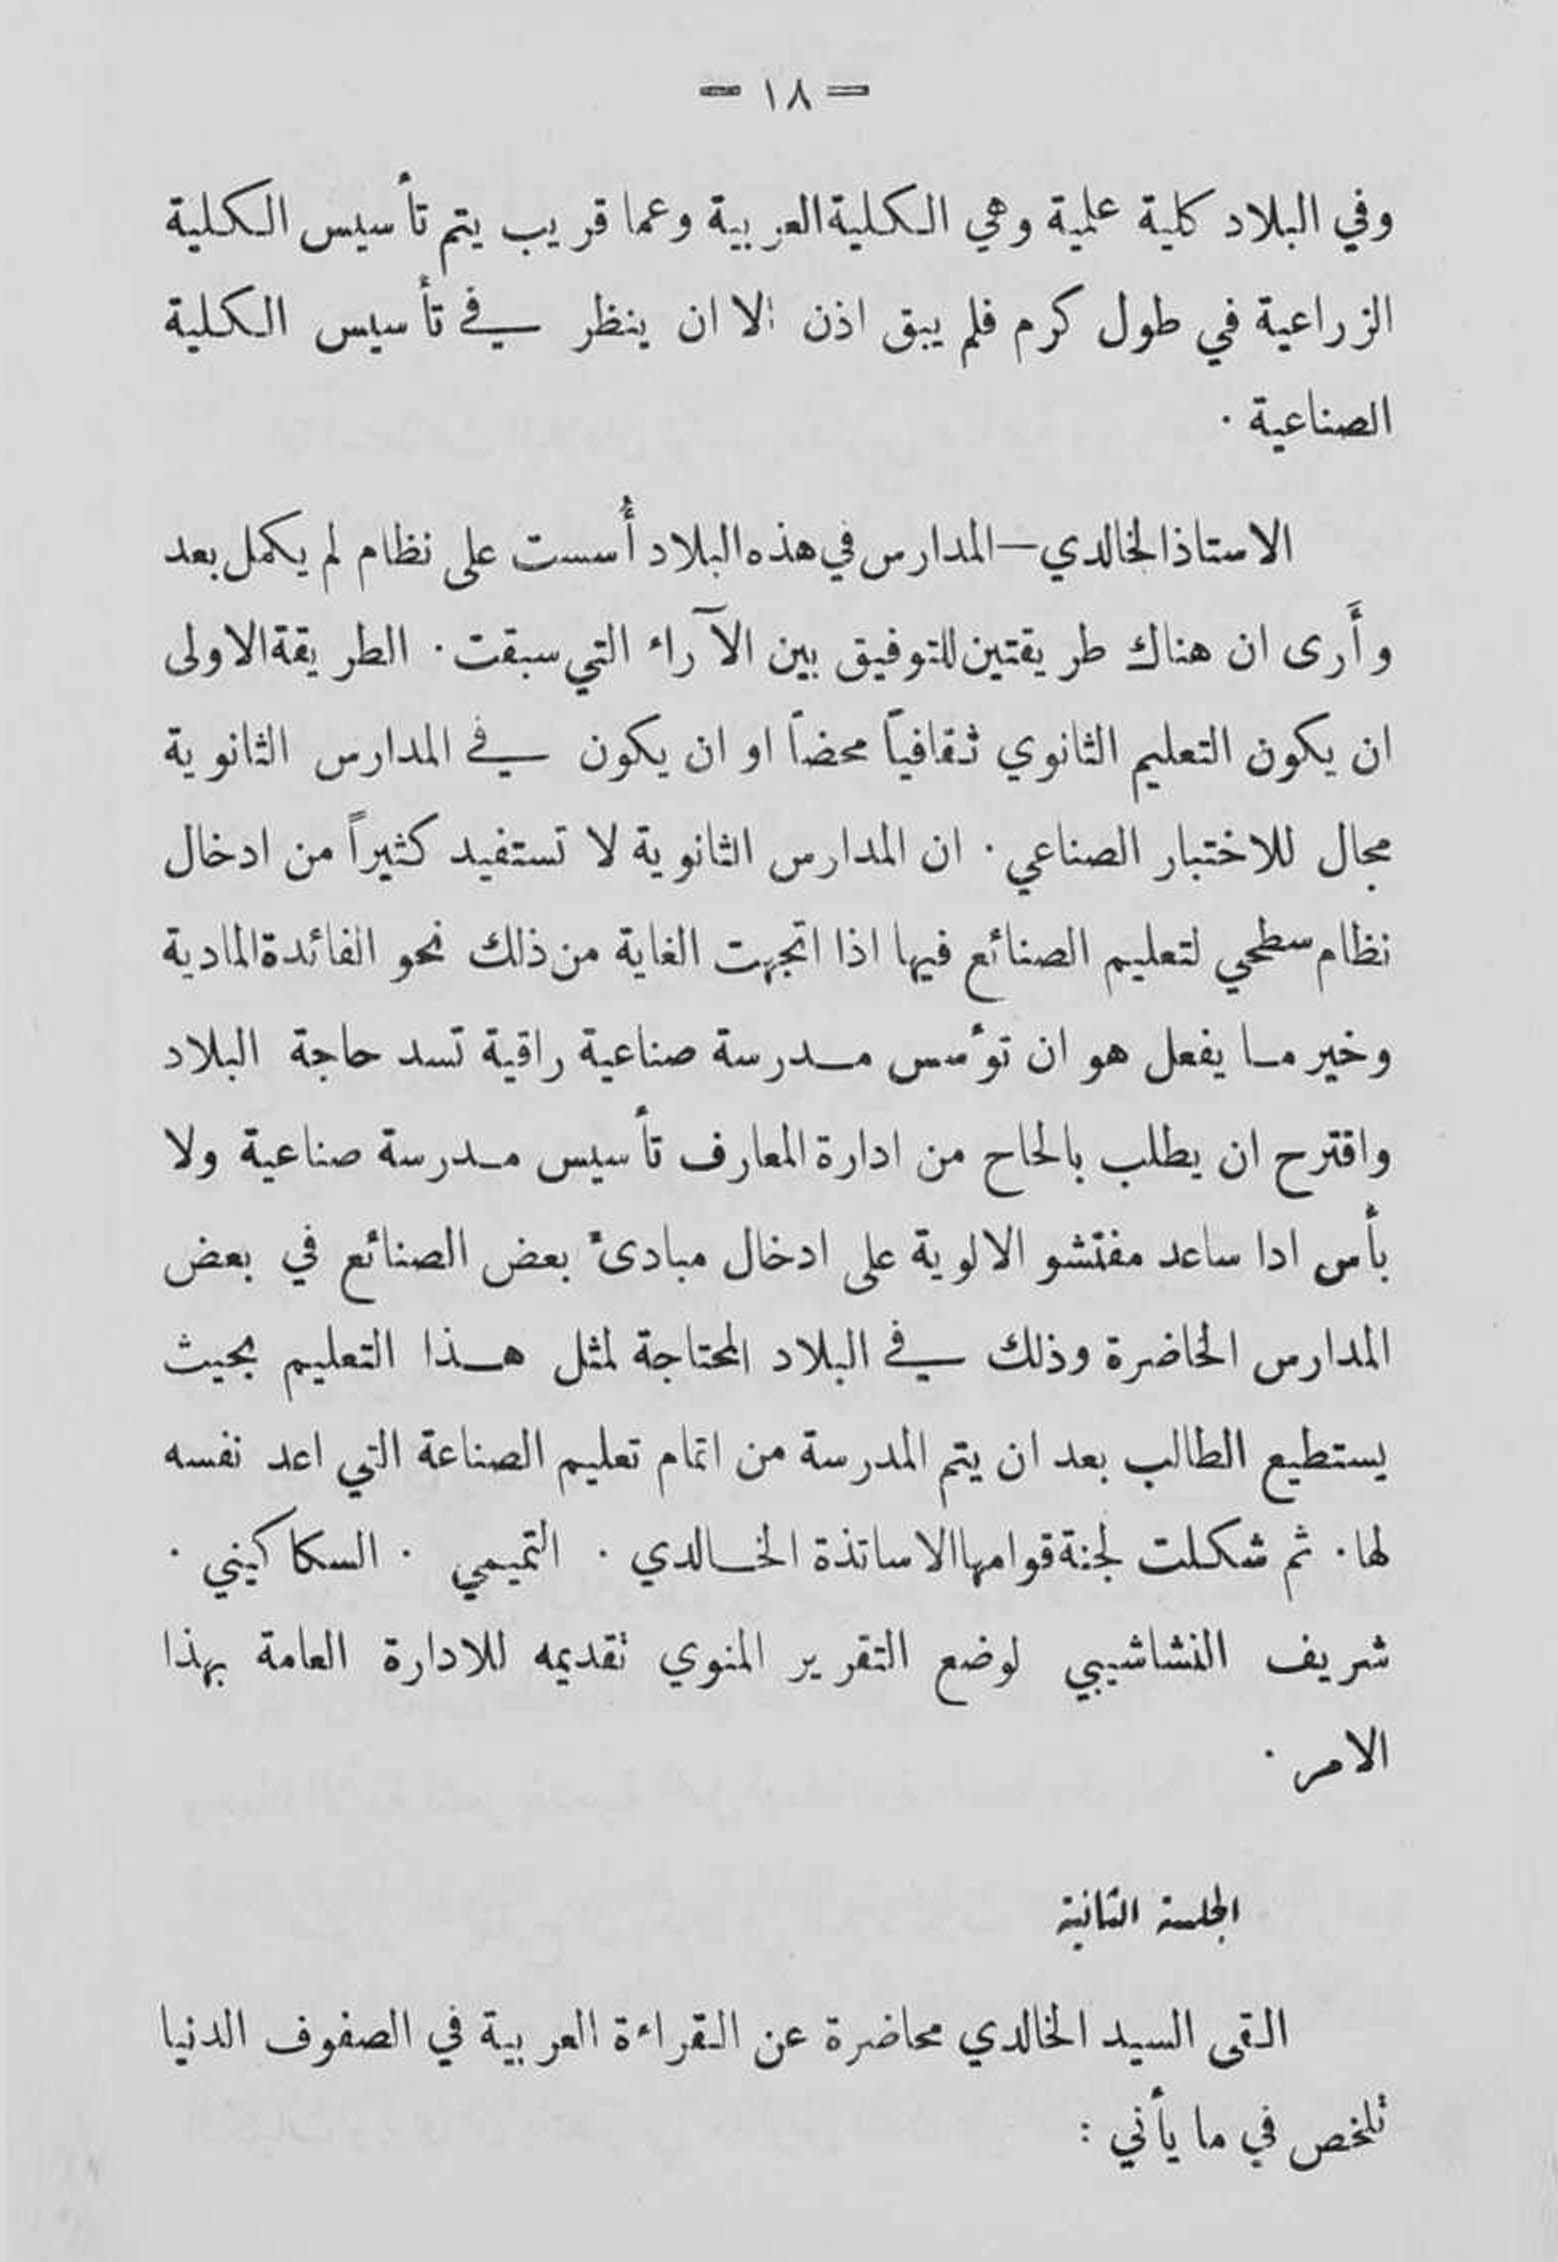 = ١٨ =
وفي البلاد كلية علمية وهي الكلية العربية وعما قريب يتم تأسيس الكلية
الزراعية في طول كرم فلم يبق اذن الا ان ينظر في تأسيس الكلية
الصناعية ·
الاستاذ الخالدي — المدارس في هذه البلاد أُسست على نظام لم يكمل بعد
وأَرى ان هناك طريقتين للتوفيق بين الآراء التي سبقت · الطريقة الاولى
ان يكون التعليم الثانوي ثقافياً محضاً او ان يكون في المدارس الثانوية
مجال للاختبار الصناعي · ان المدارس الثانوية لا تستفيد كثيراً من ادخال
نظام سطحي لتعليم الصنائع فيها اذا اتجهت الغاية من ذلك نحو الفائدة المادية
وخير ما يفعل هو ان تؤسس مدرسة صناعية راقية تسد حاجة البلاد
واقترح ان يطلب بالحاح من ادارة المعارف تأسيس مدرسة صناعية ولا
بأس ادا ساعد مفتشو الالوية على ادخال مبادئ بعض الصنائع في بعض
المدارس الحاضرة وذلك في البلاد المحتاجة لمثل هذا التعليم بحيث
يستطيع الطالب بعد ان يتم المدرسة من اتمام تعليم الصناعة التي اعد نفسه
لها · ثم شكلت لجنة قوامها الاساتذة الخالدي · التميمي · السكاكيني ·
شريف النشاشيبي لوضع التقرير المنوي تقديمه للادارة العامة بهذا
الامر ·
الجلسة الثانية
القى السيد الخالدي محاضرة عن القراءة العربية في الصفوف الدنيا
تلخص في ما يأتي :